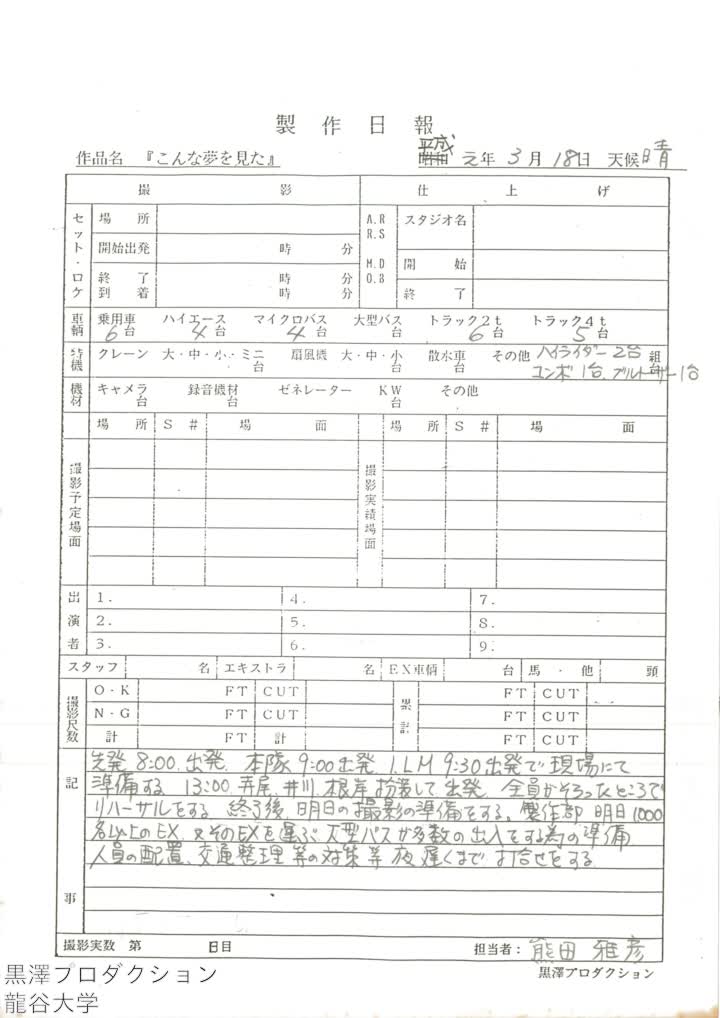 製作日報
作品名 『こんな夢を見た』 平成 元年 3月 18日 天候 晴
撮影 仕上げ
セット・ロケ 場所 A.R R.S スタジオ名
開始出発 時 分 M.D O.8 開始
終了 時 分 終了
到着 時 分
車輌 乗用車 6台 ハイエース 4台 マイクロバス 4台 大型バス 台 トラック2t 6台 トラック4t 5台
特機 クレーン 大・中・小・ミニ 台 扇風機 大・中・小 台 散水車 台 その他 ハイライダー2台 組
ユンボ1台、ブルトーザー1台
機材 キャメラ 台 録音機材 台 ゼネレーター KW 台 その他
場所 S# 場面 場所 S# 場面
撮影予定場面 撮影実績場面
出演者 1. 4. 7.
2. 5. 8.
3. 6. 9.
スタッフ 名 エキストラ 名 EX車輌 台 馬・他 頭
撮影尺数 O・K FT CUT 累計 FT CUT
N・G FT CUT FT CUT
計 FT 計 FT CUT
記事
先発 8:00.出発. 本隊 9:00出発 I.L.M 9:30出発で現場にて
準備する 13:00.寺尾、井川、根岸扮装して出発. 全員がそろったところで
リハーサルをする. 終了後、明日の撮影の準備をする。製作部 明日1000
名以上のEX.又そのEXを運ぶ大型バスが多数の出入をする為の準備
人員の配置、交通整理等の対策等夜遅くまで打合せをする
撮影実数 第 日目 担当者: 熊田雅彦
黒澤プロダクション
黒澤プロダクション
龍谷大学